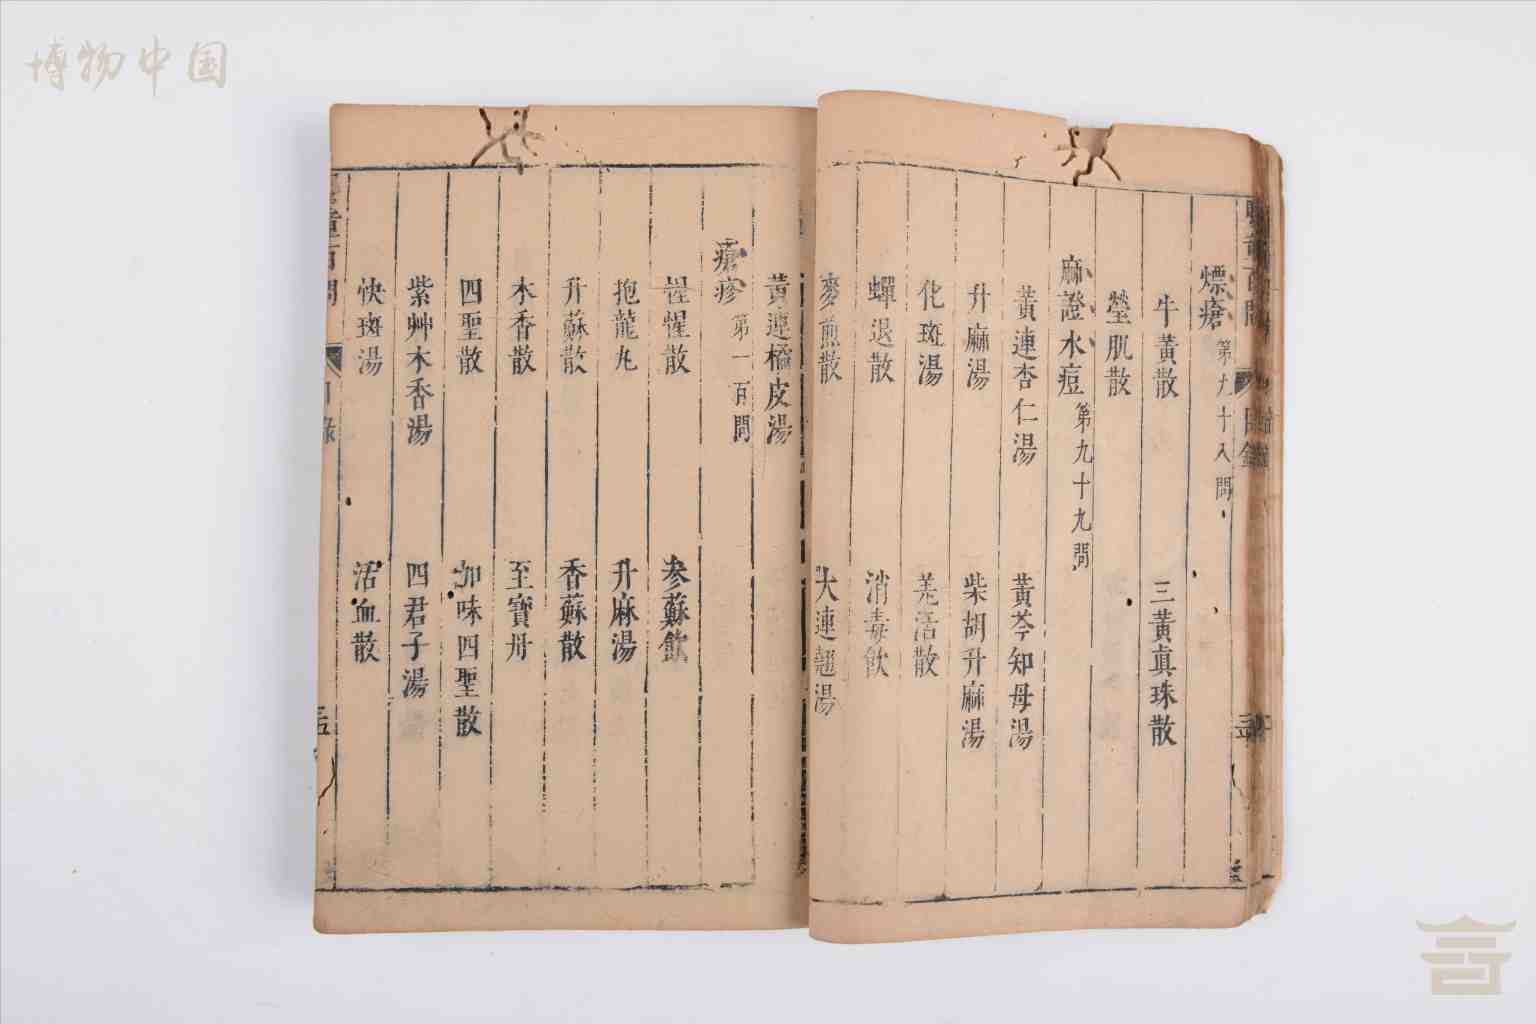 博物中国
熛瘡 第九十八問
牛黃散 三黃真珠散
瑩肌散
麻證水痘 第九十九問
黃連杏仁湯 黃芩知母湯
升麻湯 柴胡升麻湯
化斑湯 羌活散
蟬退散 消毒飲
麥煎散 大連翹湯
黃連橘皮湯
瘡疹 第一百問
惺惺散 參蘇飲
抱龍丸 升麻湯
升蘇散 香蘇散
木香散 至寶丹
四聖散 加味四聖散
紫艸木香湯 四君子湯
快斑湯 活血散